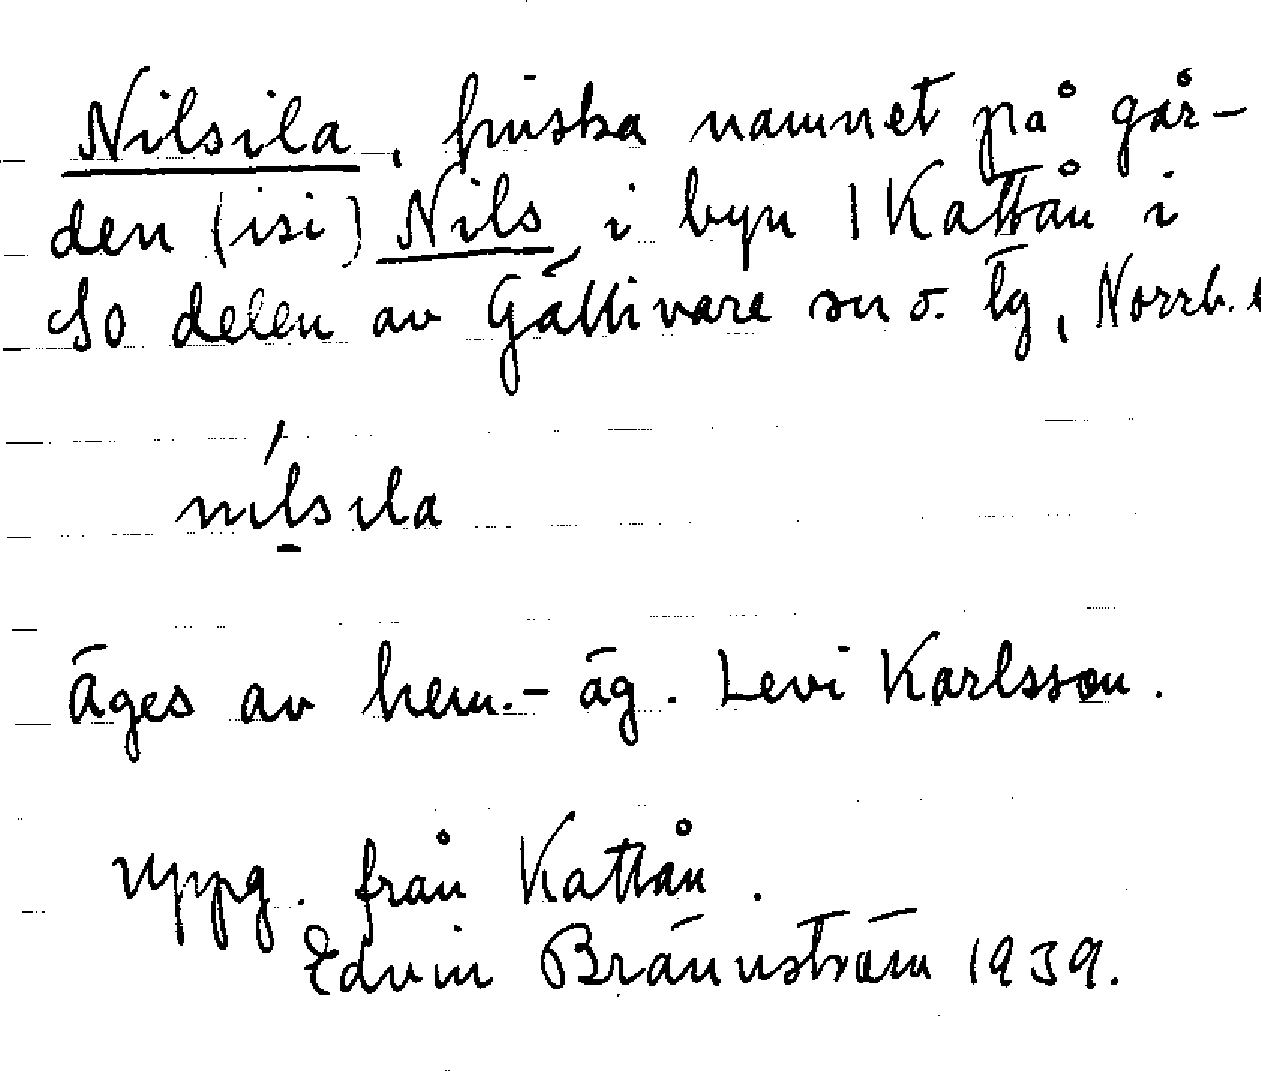 Nilsila, finska namnet på går-
den (isi) Nils i byn 1 Kattån i
So delen av Gällivare sn o. tg, Norrb. l
nílsila
äges av hem.-äg. Levi Karlsson.
Uppg. från Kattån.
Edvin Brännström 1939.